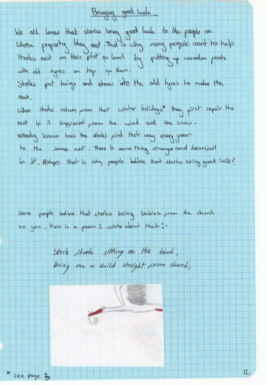 Bringing good luck
We all know that storks bring good luck to the people on
whose property they nest. That is why many people want to help
storks nest on their plot of land by putting up wooden posts
with old tyres on top of them.
Storks put twigs and straw into the old tyres to make the
nest.
When storks return from their "winter holidays" they first repair the
nest if it suffered from the wind and the snow.
Nobody knows how the storks find their way every year
to the same nest. There is something strange and
in it. Perhaps that is why people believe that storks bring good luck!
Some people believe that storks bring babies from the church
to you. Here is a poem I wrote about that:-
Stork, stork sitting on the
Bring me a child straight from church,
* see page